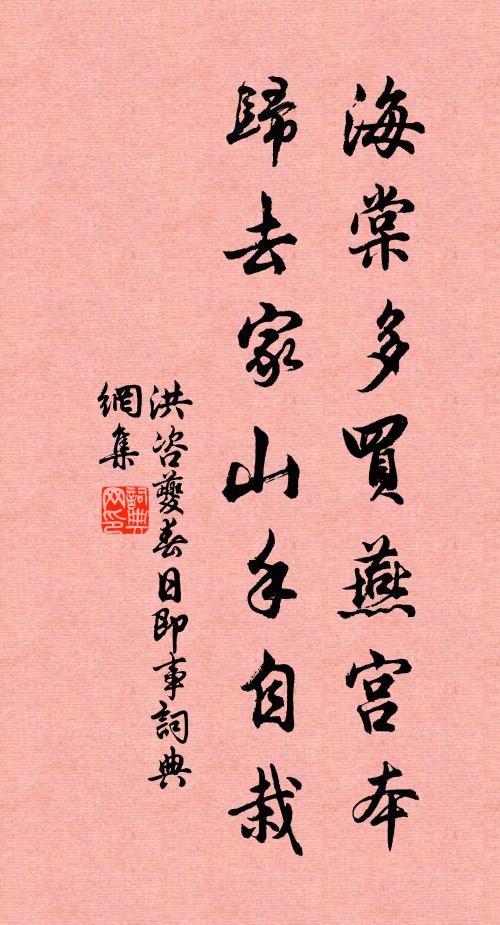 海棠多買燕宮本
歸去家山手自栽
洪咨夔春日即事詞典
網集
詞典
网印